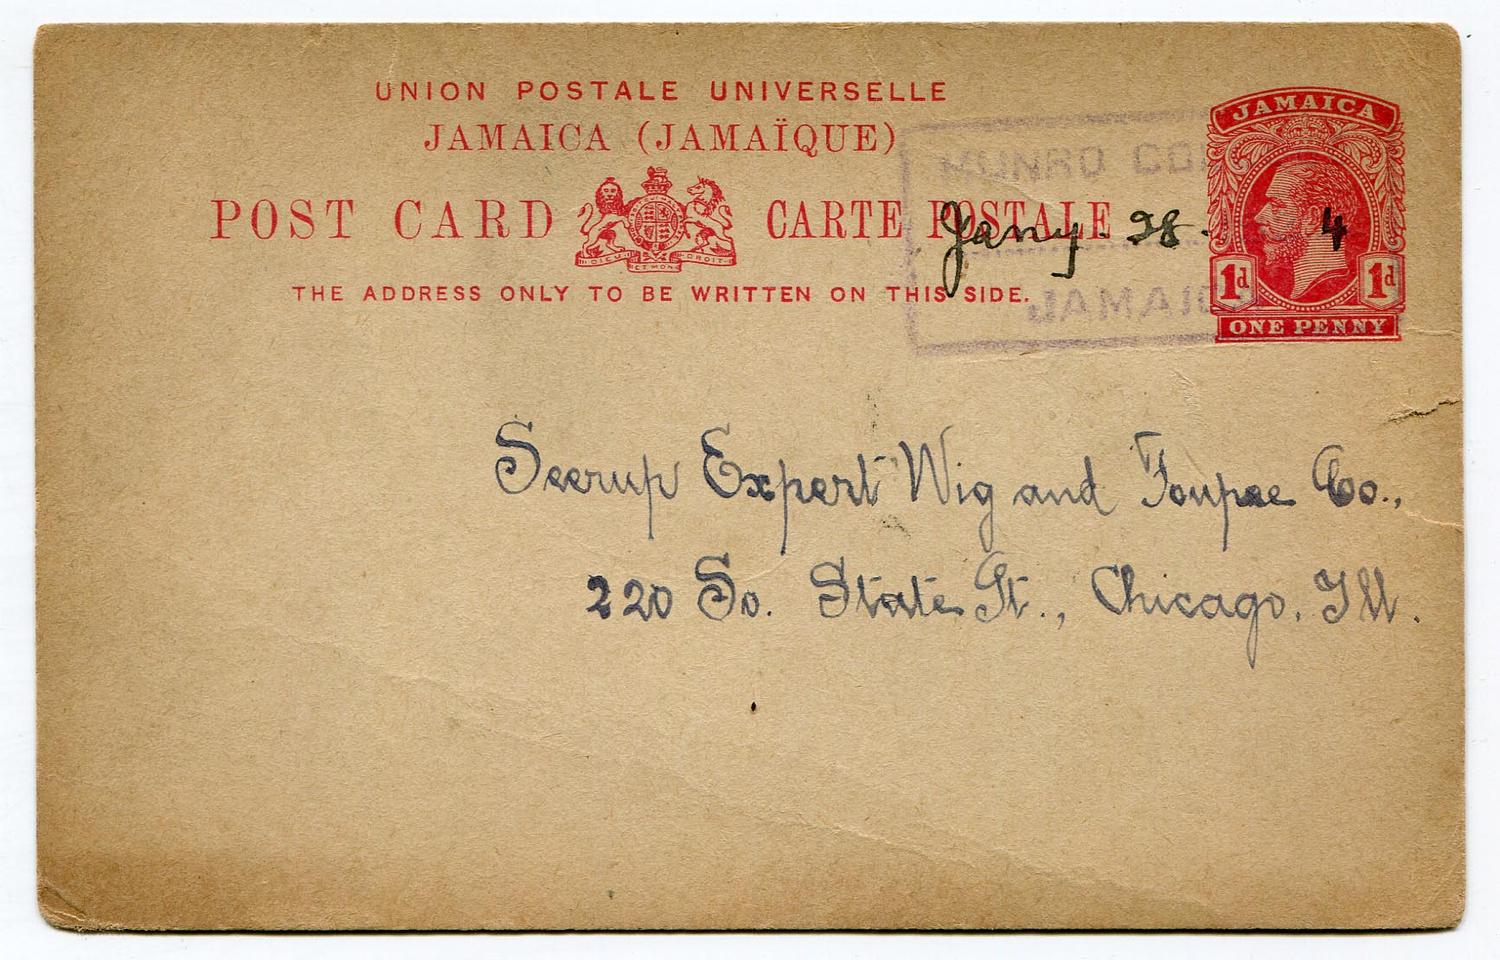 UNION POSTALE UNIVERSELLE
JAMAICA (JAMAÏQUE)
POST CARD CARTE POSTALE
DIEU ET MON DROIT
THE ADDRESS ONLY TO BE WRITTEN ON THIS SIDE.
MUNRO
Jany. 28. 4
JAMAIC
JAMAICA
1d 1d
ONE PENNY
Seerup Expert Wig and Toupee Co.,
220 So. State St., Chicago, Ill.